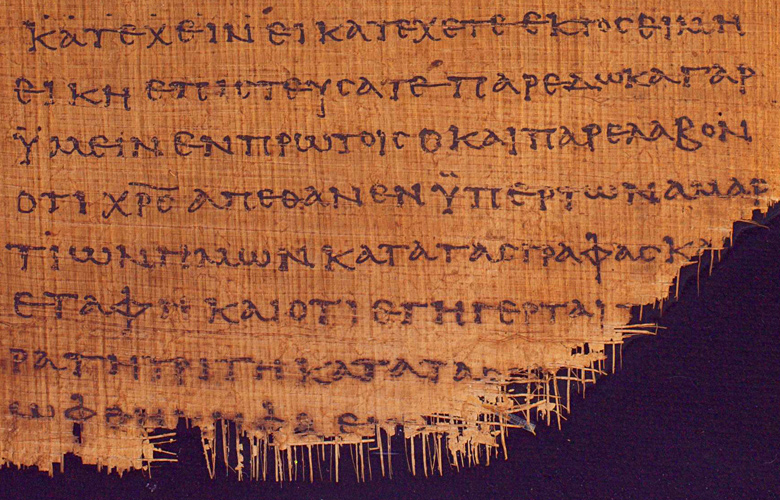 ΚΑΤΕΧΕΙΝ ΕΙ ΚΑΤΕΧΕΤΕ ΕΚΤΟϹ ΕΙ ΜΗ
ΕΙΚΗ ΕΠΙϹΤΕΥϹΑΤΕ ΠΑΡΕΔΩΚΑ ΓΑΡ
ΫΜΕΙΝ ΕΝ ΠΡΩΤΟΙϹ Ο ΚΑΙ ΠΑΡΕΛΑΒΟΝ
ΟΤΙ Χ̅Ρ̅Ϲ̅ ΑΠΕΘΑΝΕΝ ΫΠΕΡ ΤΩΝ ΑΜΑΡ
ΤΙΩΝ ΗΜΩΝ ΚΑΤΑ ΤΑϹ ΓΡΑΦΑϹ ΚΑ
ΕΤΑΦΗ ΚΑΙ ΟΤΙ ΕΓΗΓΕΡΤΑΙ Τ
ΡΑ ΤΗ ΤΡΙΤΗ ΚΑΤΑ ΤΑϹ
ΩΦΘΗ ΚΗΦΑ